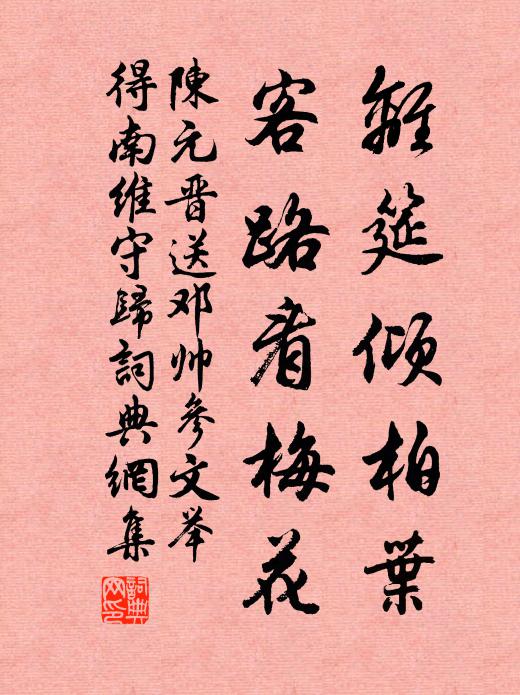 離筵傾柏葉
客路看梅花
陳元晋送邓帅參文举
得南维守歸詞典網集
詞典網印